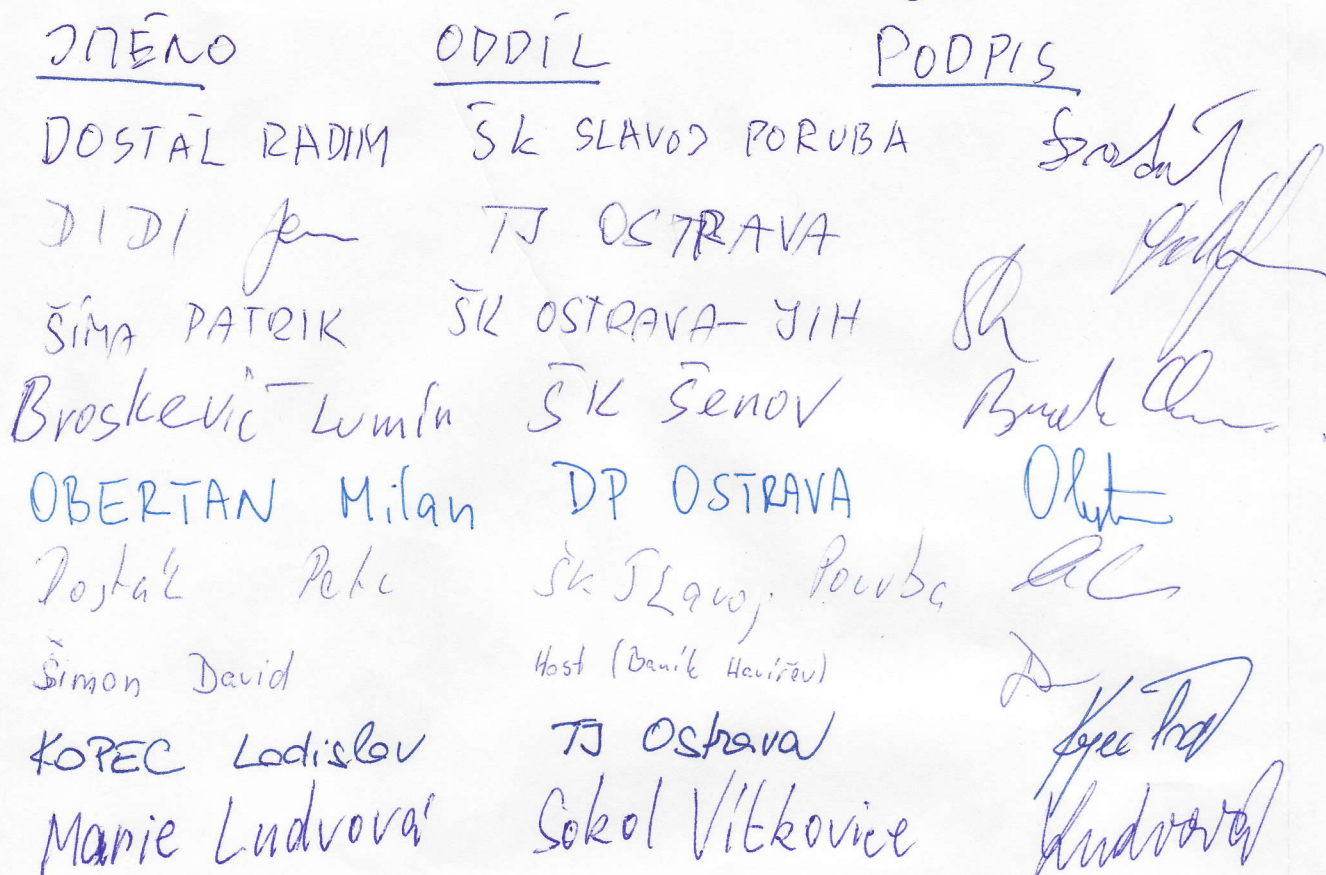 JMÉNO ODDÍL PODPIS
DOSTÁL RADIM ŠK SLAVOJ PORUBA
DIDI Jan TJ OSTRAVA
ŠÍMA PATRIK ŠK OSTRAVA-JIH
Broskevič Lumín ŠK Šenov
OBERTAN Milan DP OSTRAVA
Dostál Petr ŠK Slavoj Poruba
Šimon David Host (Baník Havířov)
KOPEC Ladislav TJ Ostrava
Marie Ludvová Sokol Vítkovice Ludvová